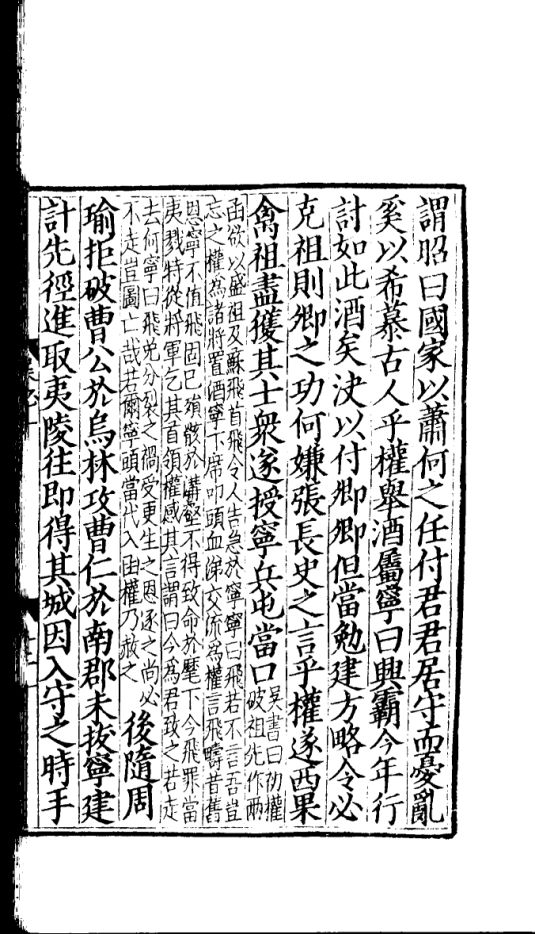 謂昭曰國家以蕭何之任付君君居守而憂亂
奚以希慕古人乎權舉酒屬寧曰興霸今年行
討如此酒矣决以付卿卿但當勉建方略令必
克祖則卿之功何嫌張長史之言乎權遂西果
禽祖盡獲其士衆遂授寧兵屯當口
吳書曰初權
破祖先作兩
函欲以盛祖及蘇飛首飛令人告急於寧寧曰飛若不言吾豈
忘之權為諸將置酒寧下席叩頭血涕交流為權言飛疇昔舊
恩寧不值飛固已殞骸於溝壑不得致命於麾下今飛罪當
夷戮特從將軍乞其首領權感其言謂曰今為君致之若走
去何寧曰飛免分裂之禍受更生之恩逐之尚必
不走豈圖亡哉若爾寧頭當代入函權乃赦之
後隨周
瑜拒破曹公於烏林攻曹仁於南郡未拔寧建
計先徑進取夷陵往即得其城因入守之時手